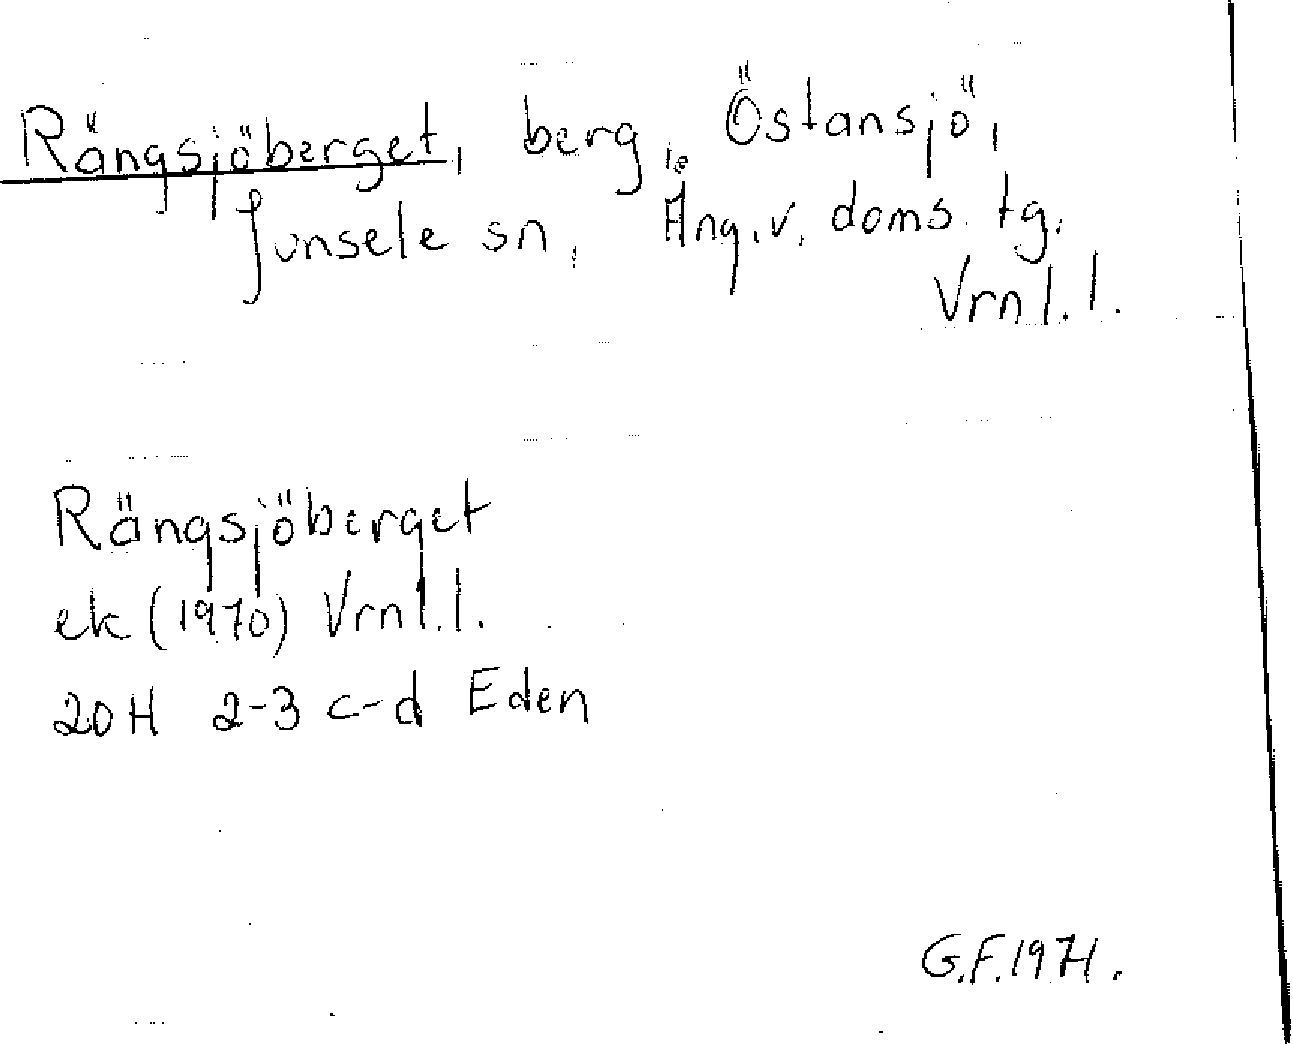 Rängsjöberget, berg, Östansjö,
Junsele sn, Äng.v. doms. tg.
Vrnl.l.
Rängsjöberget
ek (1970) Vrnl.l.
20H 2-3 c-d Eden
G.F.1971.